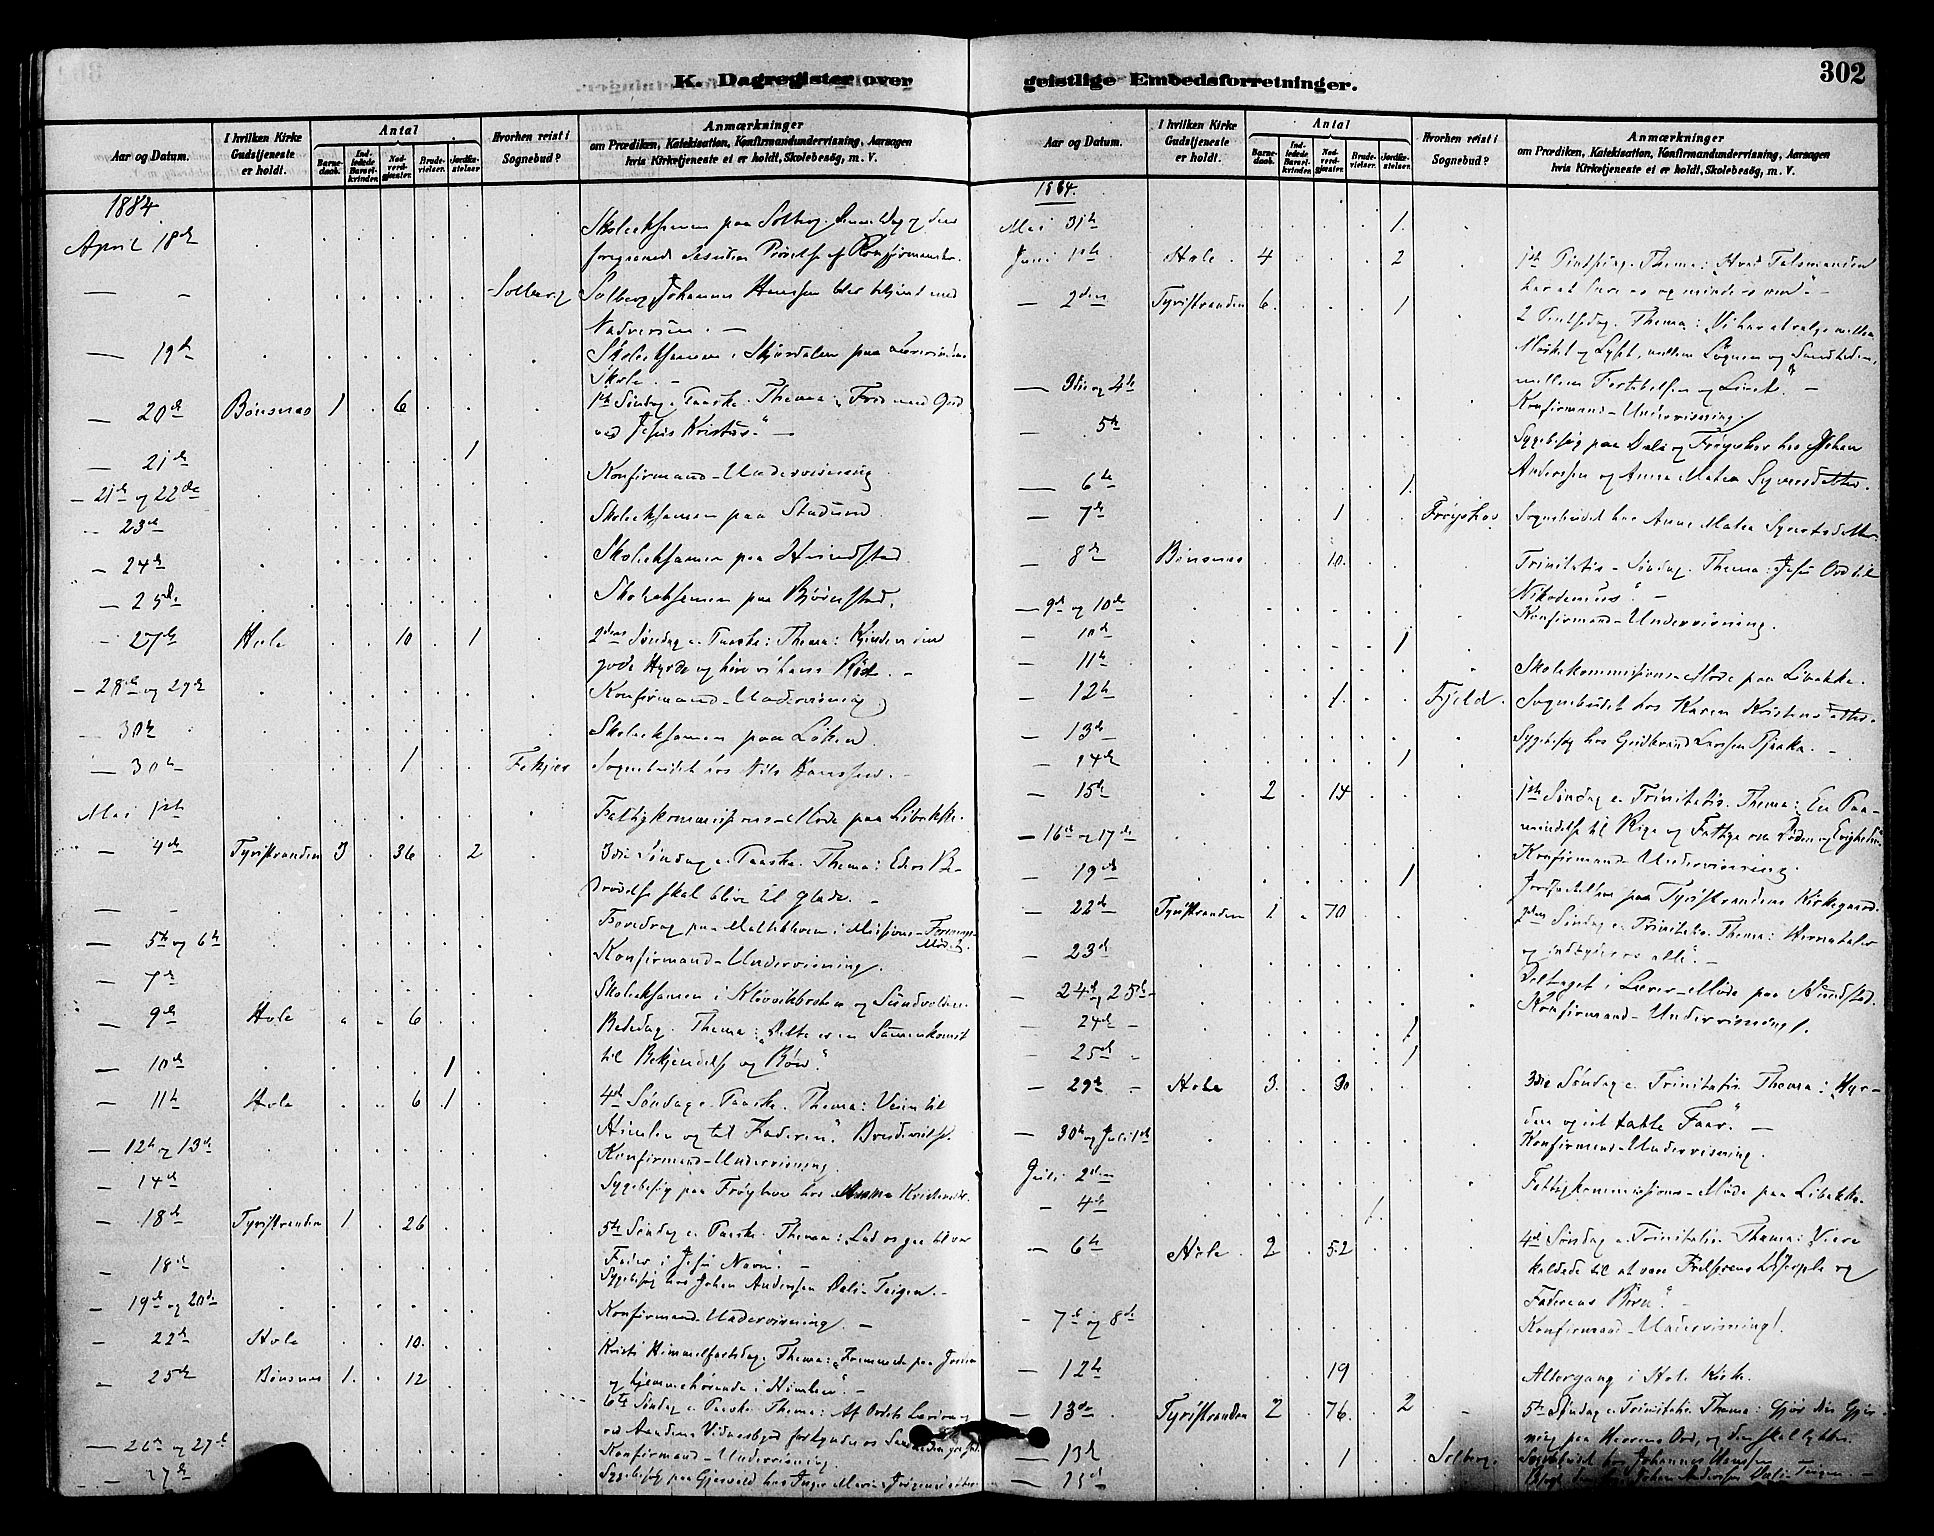 K. Dagregister over geistlige Embedsforretninger.
302
Aar og Datum.
I hvilken Kirke Gudstjeneste er holdt.
Antal
Barnedaab.
Indledede Barselkvinder.
Nadverdgjæster.
Brudevielser.
Jordfæstelser
Hvorhen reist i Sognebud?
Anmærkninger
om Prædiken, Katekisation, Konfirmandundervisning, Aarsagen
hvis Kirketjeneste ei er holdt, Skolebesøg, m. V.
1884
April 18de Skoleeksamen paa Solberg. Denne Dag og den
foregaaende desuden Prøvelse af Konfirmander.
— - Solberg Solberg Johannes Hansen blev betjent med
Nadveren. —
— 19de Skoleeksamen i Skjærdalen paa
Skole. —
— 20de Bönsnæs 1 6 1ste Søndag e. Paaske. Thema: "Fred med Gud
ved Jesus Kristus." —
— 21de 1
— 21de og 22de Konfirmand-Undervisning
— 23de Skoleeksamen paa Stadum.
— 24de Skoleeksamen paa Hundstad.
— 25de Skoleeksamen paa Bjørnstad.
— 27de Hole 10 1 2den Søndag e. Paaske: Thema: Kjender den
gode Hyrde og høre vi hans Røst. —
— 28de og 29de Konfirmand-Undervisning
— 30te Skoleeksamen paa Løken.
— 30te Fekjær 1 Sognebudet hos Nils Hansen. —
Mai 1ste Fattigkommissions-Møde paa Libakke.
— 4de Tyristranden 3 36 2 3die Søndag e. Paaske. Thema: Eders Be-
drøvelse skal blive til Glæde. —
— - Foredrag paa i Missions-Forenings-
Møde.
— 5te og 6te Konfirmand-Undervisning.
— 7de Skoleeksamen i og Sundvolden.
— 9de Hole 6 Bededag. Thema: Dette er en Sammenkomst
til Bekjendelse og Bøn."
— 10de 1
— 11te Hole 6 1 4de Søndag e. Paaske. Thema: Veien til
Himlen og til Faderen." Brudevielse.
— 12te og 13de Konfirmand-Undervisning.
— 14de Sygebesøg paa Frøyhov hos
— 18de Tyristranden 1 26 5te Søndag e. Paaske. Thema: Lad os gaa til vor
Fader i Jesu Navn." —
— 18de Sygebesøg hos Johan Andersen Dals-Teigen. —
— 19de og 20de Konfirmand-Undervisning. —
— 22de Hole 10 Kristi Himmelfartsdag. Thema: "Fremmede paa Jorden
og hjemmehørende i Himlen." —
— 25de Bönsnæs 1 12 6te Søndag e. Paaske. Thema: Af Ordets
ved Aandens Vidnesbyrd forkyndes
— 26de og 27de Konfirmand-Undervisning.
— 27de Sygebesøg paa Gjesvold hos Inger Marie
Aar og Datum.
I hvilken Kirke Gudstjeneste er holdt.
Antal
Barnedaab.
Indledede Barselkvinder.
Nadverdgjæster.
Brudevielser.
Jordfæstelser.
Hvorhen reist i Sognebud?
Anmærkninger
om Prædiken, Katekisation, Konfirmandundervisning, Aarsagen
hvis Kirketjeneste ei er holdt, Skolebesøg, m. V.
1884.
Mai 31te 1
Juni 1ste Hole 4 2 1ste Pintsedag. Thema: "Hvad Talsmanden
har at lære os og minde os om." —
— 2den Tyristranden 6 1 2 Pintsedag. Thema: "Vi har at vælge mellem
Mørket og Lyset, mellem Løgnen og Sandheden,
mellem Fortabelsen og Livet." —
— 3die og 4de Konfirmand-Undervisning.
— 5te Sygebesøg paa Dals og Frøyshov hos Johan
Anderssen og Anne Matea Syversdatter.
— 6te 1
— 7de 1 Frøyshov Sognebudet hos Anne Matea Syversdatter.
— 8de Bönsnæs 10 Trinitatis-Søndag. Thema: Jesu Ord til
Nikodemus." —
— 9de og 10de Konfirmand-Undervisning.
— 10de 1
— 11te Skolekommissions-Møde paa Libakke.
— 12te 1 Fjeld. Sognebudet hos Karen Kristensdatter.
— 13de Sygebesøg hos Gudbrand Larssen —
— 14de 1
— 15de 2 14 1ste Søndag e. Trinitatis. Thema: En Paa-
mindelse til Rige og Fattige om Døden og Evigheden.
— 16de og 17de Konfirmand-Undervisning.
— 19de 1 Jordfæstelse paa Tyristrandens Kirkegaard.
— 22de Tyristranden 1 70 2den Søndag e. Trinitatis. Thema: Herren kalder
og indbyder os alle." —
— 23de Deltaget i Lærer-Møde paa Hundstad.
— 24de og 25de Konfirmand-Undervisning.
— 24de - 1
— 25de - 1
— 29de - Hole 3 30 3die Søndag e. Trinitatis Thema: "Hyr-
den og det tabte Faar." —
— 30te og Juli 1ste Konfirmand-Undervisning.
Juli 2den Fattigkommissions-Møde paa Libakke.
— 4de 1
— 6te Hole 2 52 4de Søndag e. Trinitatis. Thema: Vi ere
kaldede til at være Frelserens Disciple og
Faderens Børn." —
— 7de og 8de Konfirmand-Undervisning.
— 12te 19 Altergang i Hole Kirke.
— 13de Tyristranden 2 76 2 5te Søndag e. Trinitatis. Thema: Gjør din Gjer-
ning paa Herrens Ord, og den skal lykkes.
— 13de 1 Solberg. Sognebudet hos Johannes Hansen
— 15de hos Johan Andersen Dals-Teigen. —